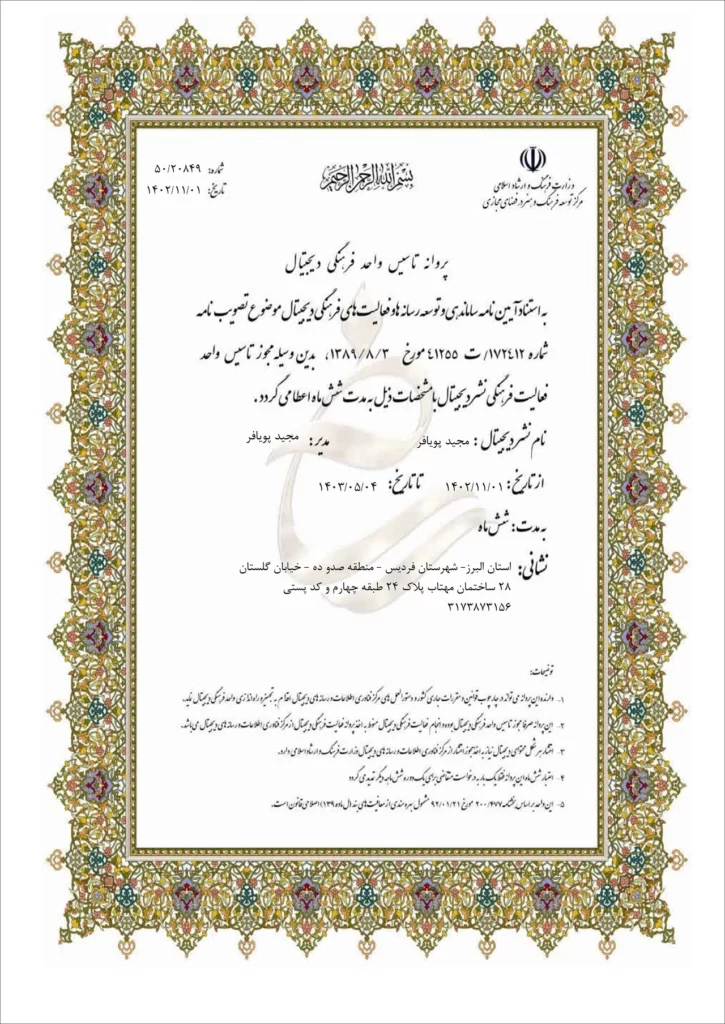 وزارت فرهنگ و ارشاد اسلامی
مرکز توسعه فرهنگ و هنر در فضای مجازی
بسم الله الرحمن الرحیم
شماره: ۵۰/۲۰۸۴۹
تاریخ: ۱۴۰۲/۱۱/۰۱
پروانه تاسیس واحد فرهنگی دیجیتال
به استناد آیین نامه ساماندهی و توسعه رسانه ها و فعالیت های فرهنگی دیجیتال موضوع تصویب نامه
شماره ۱۷۲۴۱۲/ ت ۴۱۲۵۵ مورخ ۱۳۸۹/۸/۳، بدین وسیله مجوز تاسیس واحد
فعالیت فرهنگی نشر دیجیتال با مشخصات ذیل به مدت شش ماه اعطا می گردد.
نام نشر دیجیتال: مجید پویافر مدیر: مجید پویافر
از تاریخ: ۱۴۰۲/۱۱/۰۱ تا تاریخ: ۱۴۰۳/۰۵/۰۴
به مدت: شش ماه
نشانی: استان البرز- شهرستان فردیس - منطقه صدو ده - خیابان گلستان
۲۸ ساختمان مهتاب پلاک ۲۴ طبقه چهارم و کد پستی
۳۱۷۳۸۷۳۱۵۶
توضیحات:
۱- دارنده این پروانه می تواند در چارچوب قوانین و مقررات جاری کشور و دستورالعمل های مرکز فناوری اطلاعات و رسانه های دیجیتال اقدام به تجهیز و راه اندازی واحد فرهنگی دیجیتال نماید.
۲- این پروانه صرفا مجوز تاسیس واحد فرهنگی دیجیتال بوده و انجام فعالیت فرهنگی دیجیتال منوط به اخذ پروانه فعالیت فرهنگی دیجیتال از مرکز فناوری اطلاعات و رسانه های دیجیتال می باشد.
۳- انتشار هر شکل محتوای دیجیتال نیاز به اخذ مجوز انتشار از مرکز فناوری اطلاعات و رسانه های دیجیتال وزارت فرهنگ و ارشاد اسلامی دارد.
۴- اعتبار شش ماه این پروانه فقط یک بار به درخواست متقاضی برای یک دوره شش ماهه دیگر تمدید می گردد
۵- این واحد بر اساس بخشنامه ۲۰۰/۴۷۷ مورخ ۹۲/۰۱/۲۱ مشمول بهره مندی از معافیت های بند (ل) ماده (۱۳۹) اصلاحی قانون است.